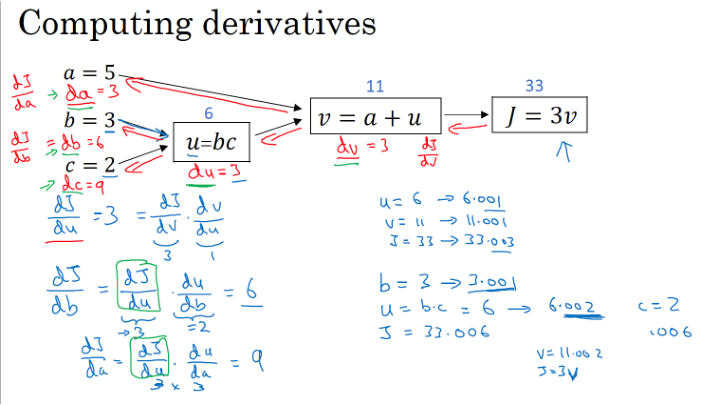 Computing derivatives
a = 5
dJ/da → da = 3
b = 3
dJ/db = db = 6
c = 2
→ dc = 9
6
u=bc
du = 3
11
v = a + u
dv = 3 dJ/dv
33
J = 3v
dJ/du = 3 = dJ/dv · dv/du
3 1
dJ/db = dJ/du · du/db = 6
→3 =2
dJ/da = dJ/du · du/da = 9
3 × 3
u = 6 → 6.001
v = 11 → 11.001
J = 33 → 33.003
b = 3 → 3.001
u = b·c = 6 → 6.002 c = 2
J = 33.006 .006
v = 11.002
J = 3v